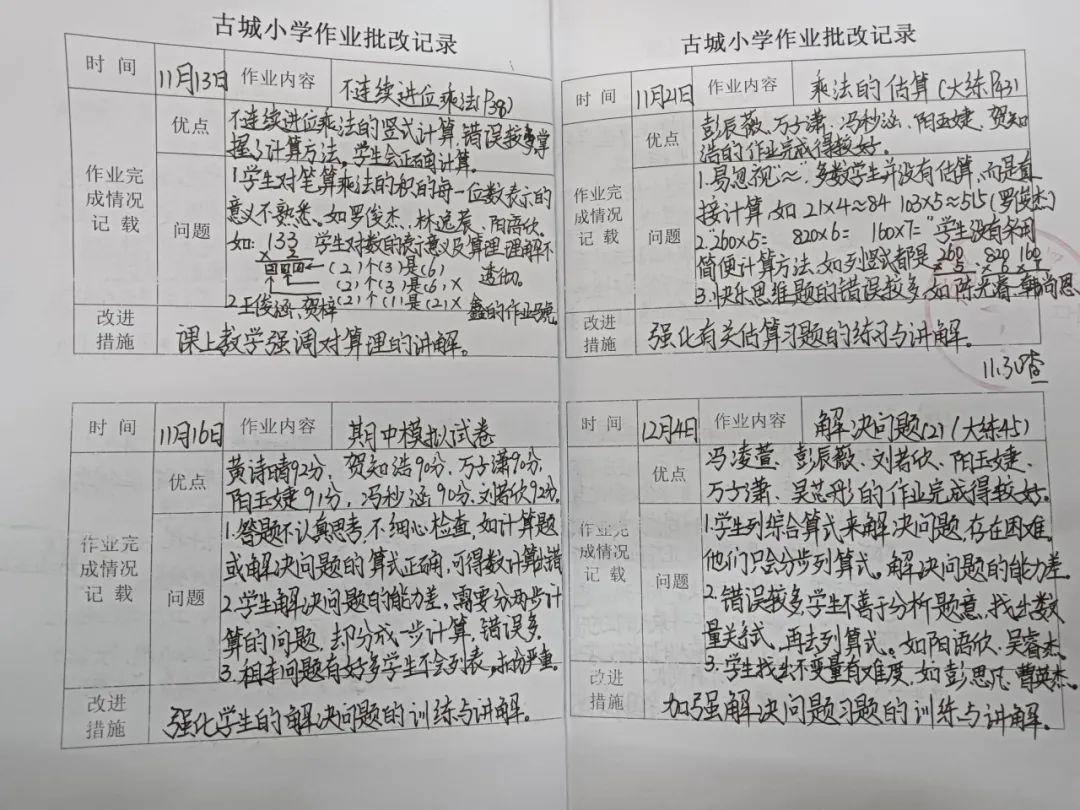 古城小学作业批改记录
时 间 11月13日 作业内容 不连续进位乘法(P38)
作业完成情况记 载
优点
不连续进位乘法的竖式计算,错误较多,掌
握了计算方法。学生会正确计算。
问题
1.学生对笔算乘法的积的每一位数表示的
意义不熟悉。如罗俊杰、林逸宸、阳语欣。
如: 133 学生对数的表示意义及算理理解不
× 2 透彻。
(2)个(3)是(6)
(2)个(3)是(6)×
(2)个(1)是(2)×
2.王俊涵、贺梓鑫的作业
改进措施
课上教学强调对算理的讲解。
时 间 11月16日 作业内容 期中模拟试卷
作业完成情况记 载
优点
黄诗晴92分,贺知浩90分,万子潇90分,
阳玉婕91分,冯秒涵90分,刘若欣92分。
问题
1.答题不认真思考,不细心检查,如计算题
或解决问题的算式正确,可得数计算错
2.学生解决问题的能力差,需要分两步计
算的问题,却分成一步计算,错误多
3.租车问题有好多学生不会列表,扣分严重。
改进措施
强化学生的解决问题的训练与讲解。
古城小学作业批改记录
时 间 11月21日 作业内容 乘法的估算(大练P43)
作业完成情况记 载
优点
彭辰薇、万子潇、冯秒涵、阳玉婕、贺知
浩的作业完成得较好。
问题
1.易忽视"≈",多数学生并没有估算,而是直
接计算,如 21×4≈84 103×5≈515(罗俊杰)
2."260×5= 820×6= 160×7="学生没有采用
简便计算方法,如列竖式都是 260 820 160
× 5 × 6 × 7
3.快乐思维题的错误较多,如陈光睿、韩尚恩
改进措施
强化有关估算习题的练习与讲解。
11.30查
时 间 12月4日 作业内容 解决问题(2)(大练45)
作业完成情况记 载
优点
冯凌萱、彭辰薇、刘若欣、阳玉婕、
万子潇、吴芯彤的作业完成得较好。
问题
1.学生列综合算式来解决问题,存在困难,
他们只会分步列算式。解决问题的能力差。
2.错误较多,学生不善于分析题意,找出数
量关系式,再去列算式。如阳语欣、吴睿杰。
3.学生找出不变量有难度,如彭思凡、曹英杰。
改进措施
加强解决问题习题的训练与讲解。